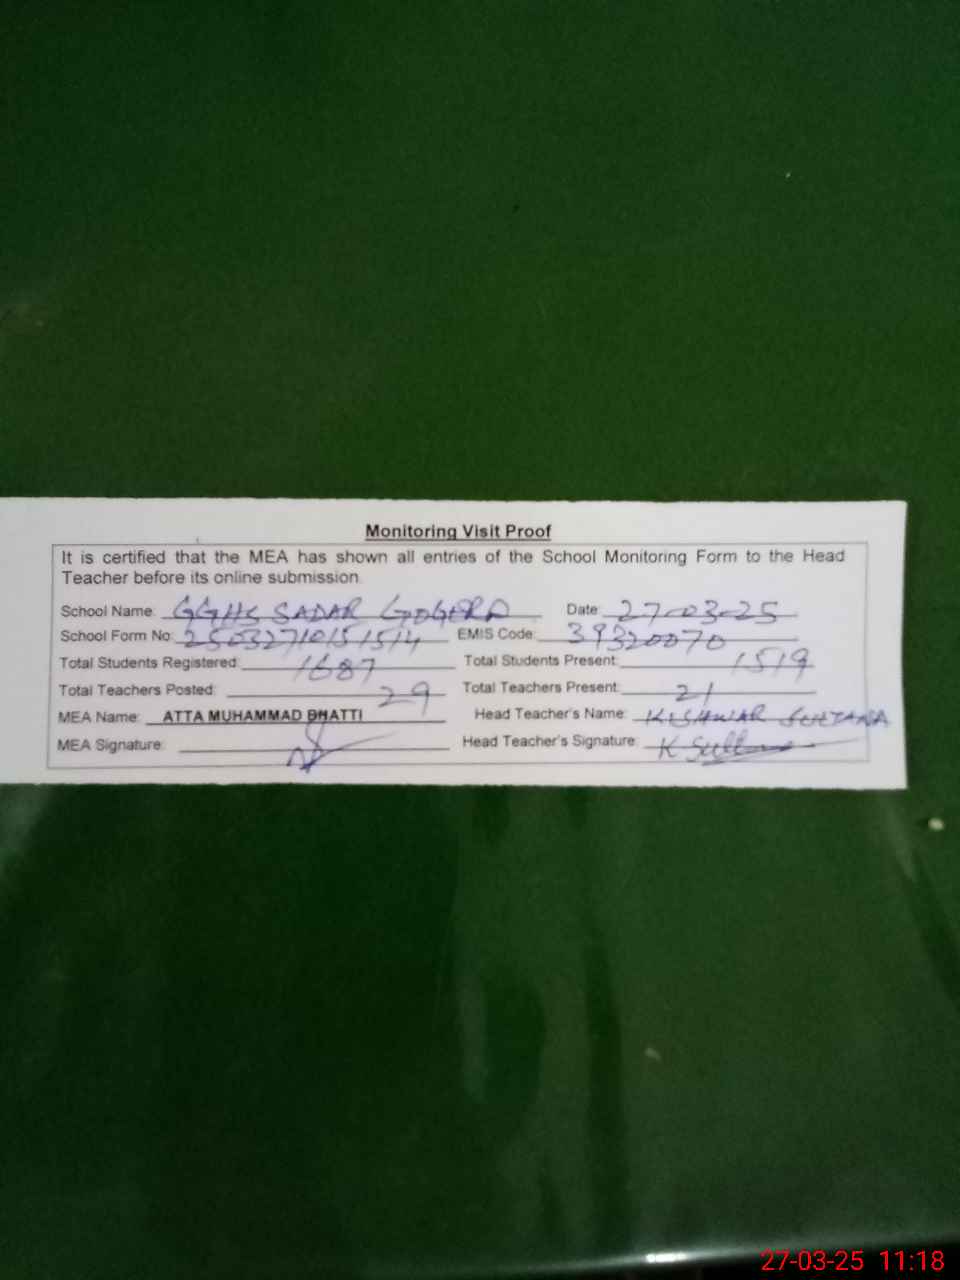 Monitoring Visit Proof
It is certified that the MEA has shown all entries of the School Monitoring Form to the Head
Teacher before its online submission.
School Name: GGHS SADAR GOGERA Date: 27-03-25
School Form No: 25032710151514 EMIS Code: 39320070
Total Students Registered: 1687 Total Students Present: 1519
Total Teachers Posted: 29 Total Teachers Present: 21
MEA Name: ATTA MUHAMMAD BHATTI Head Teacher's Name: KISHWAR SULTANA
MEA Signature: Head Teacher's Signature: K Sultana
27-03-25 11:18